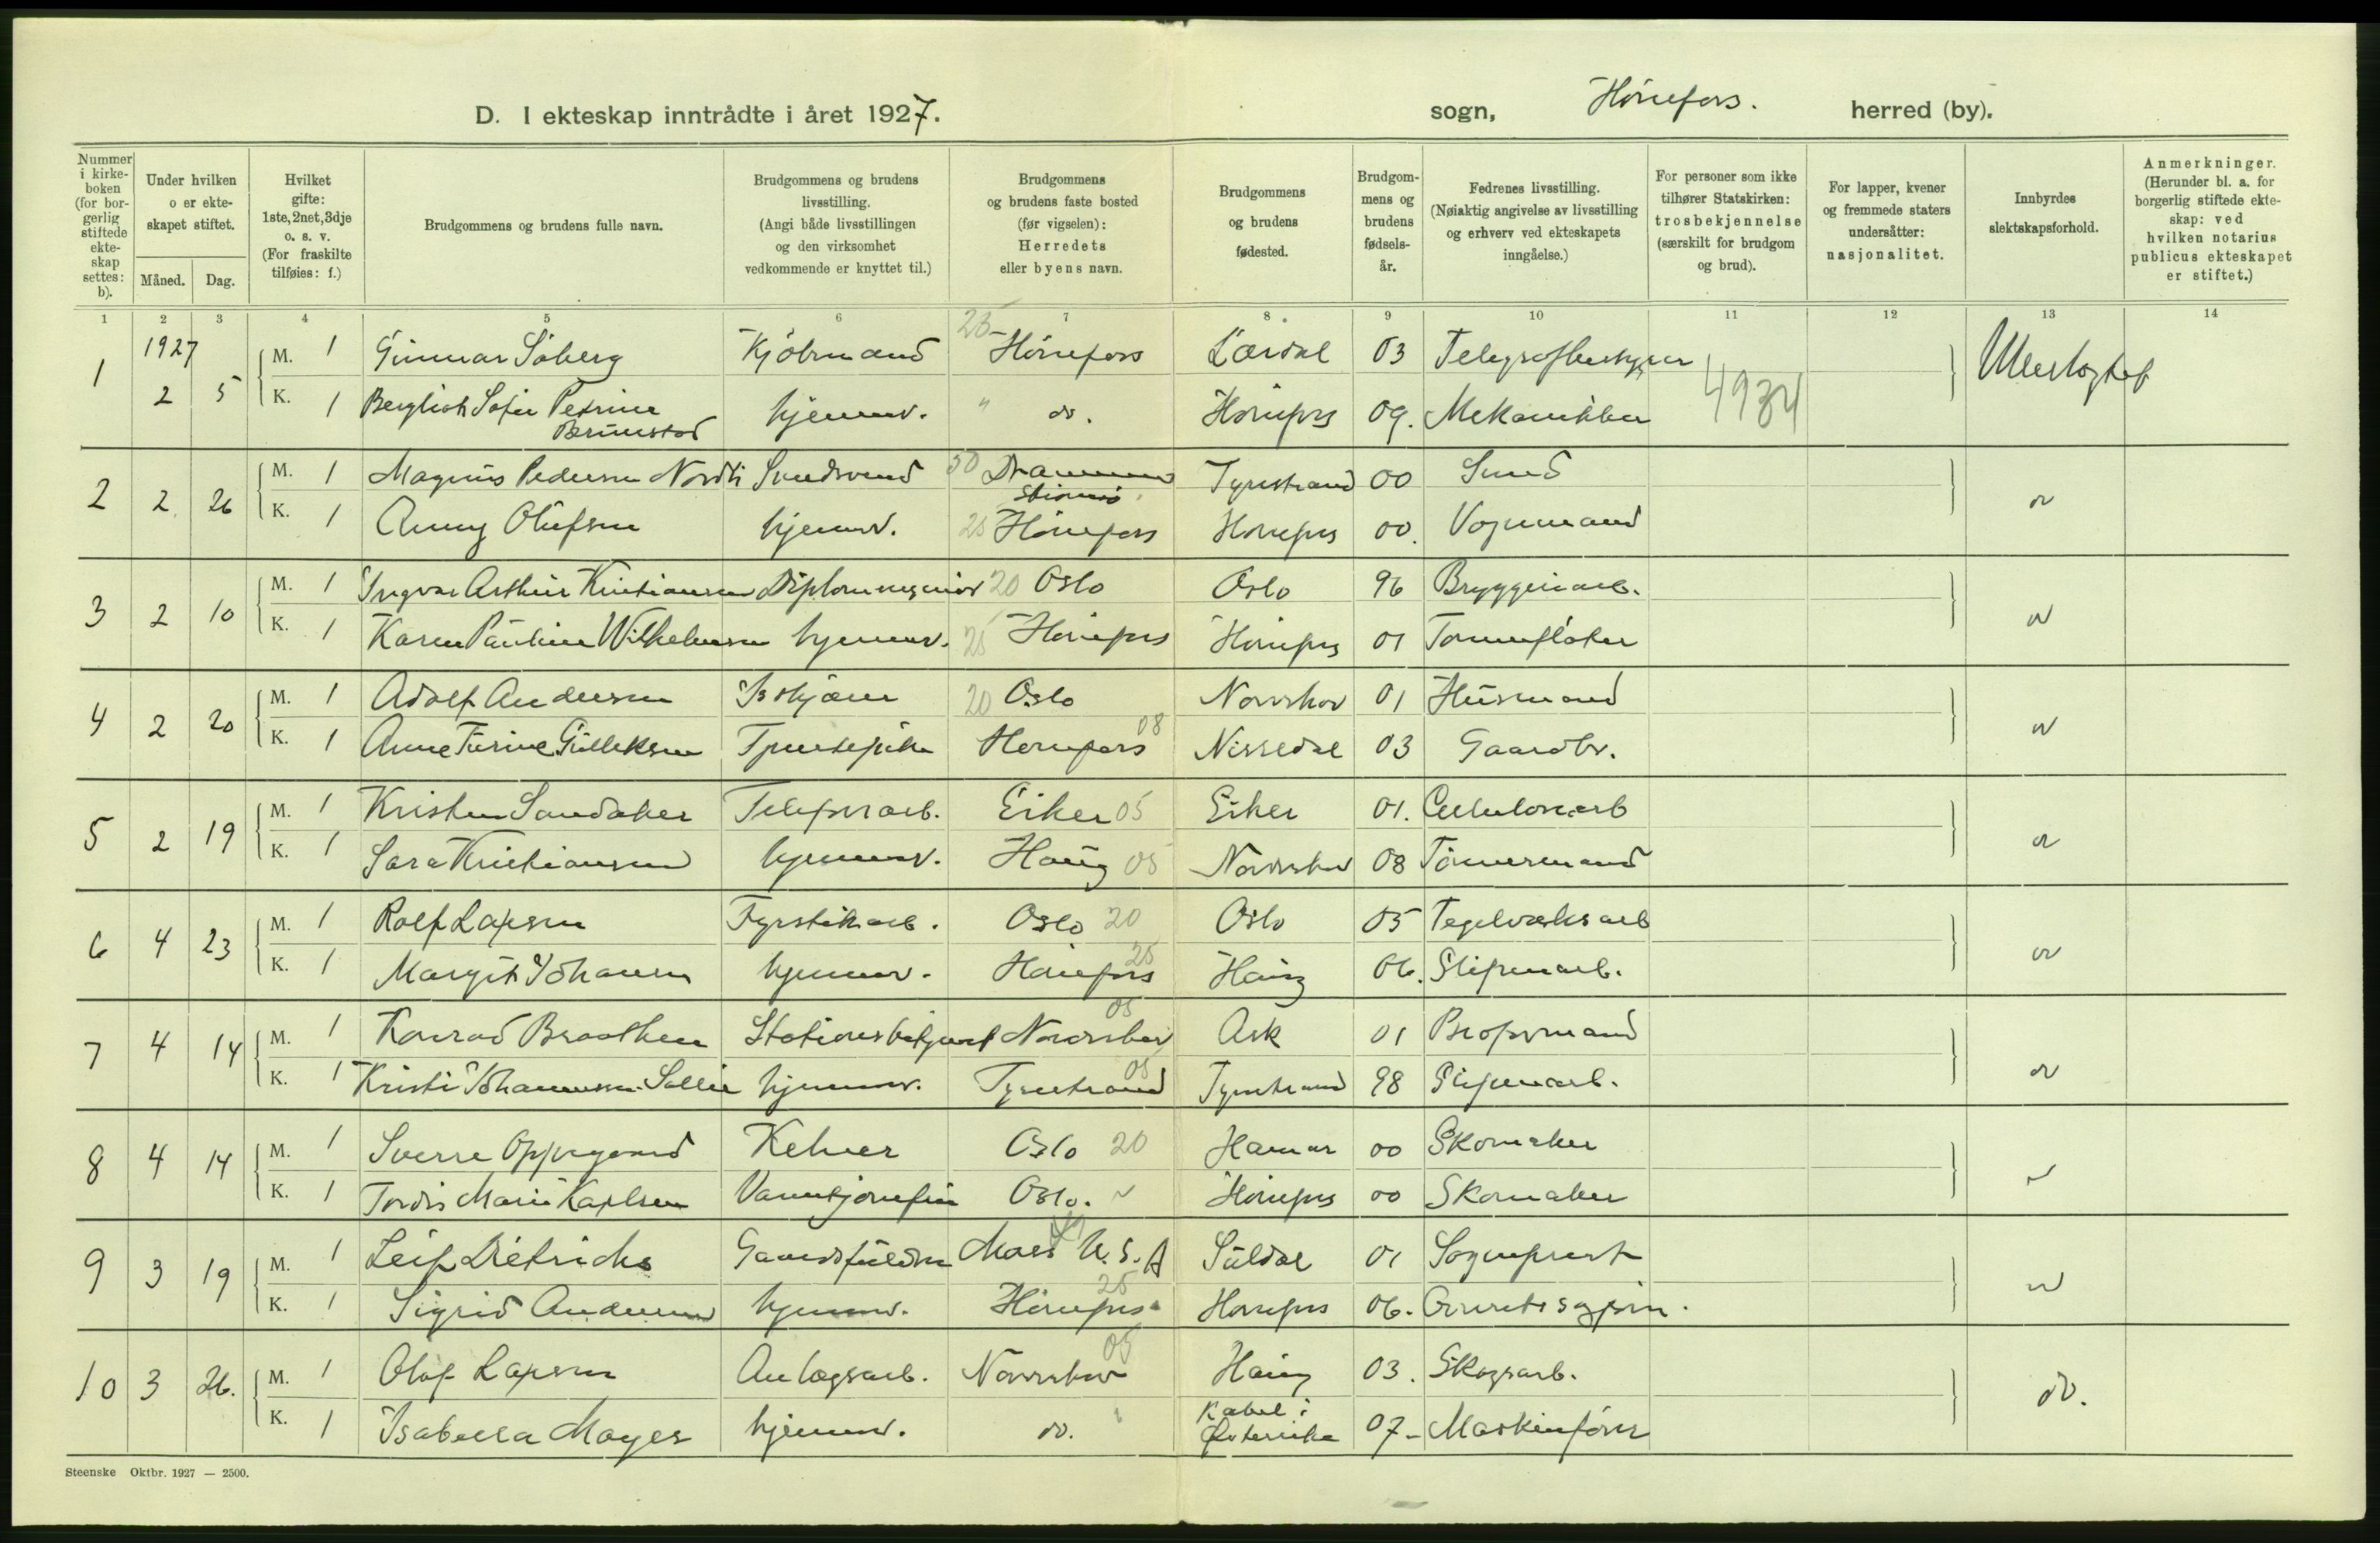 D. I ekteskap inntrådte i året 1927.
sogn, Hönefoss. herred (by).
Nummer i kirke-boken (for bor-gerlig stiftede ekte-skap settes: b).
Under hvilken o er ekte-skapet stiftet.
Måned. Dag.
Hvilket gifte: 1ste, 2net, 3dje o. s. v. (For fraskilte tilføies: f.)
Brudgommens og brudens fulle navn.
Brudgommens og brudens livsstilling. (Angi både livsstillingen og den virksomhet vedkommende er knyttet til.)
Brudgommens og brudens faste bosted (før vigselen): Herredets eller byens navn.
Brudgommens og brudens fødested.
Brudgom-mens og brudens fødsels-år.
Fedrenes livsstilling. (Nøiaktig angivelse av livsstilling og erhverv ved ekteskapets inngåelse.)
For personer som ikke tilhører Statskirken: trosbekjennelse (særskilt for brudgom og brud).
For lapper, kvener og fremmede staters undersåtter: nasjonalitet.
Innbyrdes slektskapsforhold.
Anmerkninger. (Herunder bl. a. for borgerlig stiftede ekte-skap: ved hvilken notarius publicus ekteskapet er stiftet.)
1 2 3 4 5 6 7 8 9 10 11 12 13 14
1927
1 2 5 M. 1 Gunnar Söberg Kjöbmand 25 Hönefoss Lærdal 03
K. 1 Sofie Petrine hjemmev. " do. Hönefoss 09. Mekaniker 4934
2 2 26 M. 1 Magnus Pedersen Nordli Svendsvend 50 Drammen Tyristrand 00 Smed
K. 1 Anny Olufsen hjemmev. 25 Hönefoss Hönefoss 00. Vognmand
3 2 10 M. 1 Ingvar Arthur Kristiansen Diplomingeniör 20 Oslo Oslo 96 Bryggeriarb.
K. 1 Karen Pauline Wilhelmsen hjemmev. 25 Hönefoss Hönefoss 01 Tömmerfløter
4 2 20 M. 1 Adolf Andersen 20 Oslo Norderhov 01 Husmand
K. 1 Anne Turine Gulleksen Tjenestepike Hönefoss 08 Nissedal 03 Gaardbr.
5 2 19 M. 1 Kristen Sandaker Telefonarb. Eiker 05 Eiker 01. Cellulosearb
K. 1 Sara Kristiansen hjemmev. Haug 05 Norderhov 08 Tömmermand
6 4 23 M. 1 Rolf Larsen Fyrstikarb. Oslo 20 Oslo 05 Tegelverksarb
K. 1 Margit Johansen hjemmev. Hönefoss 25 Haug 06. Sliperiarb.
7 4 14 M. 1 Konrad Braathen Stationsbetjent Norderhov 05 Ask 01
K. 1 Kristi Johannessen Sollie hjemmev. Tyristrand 05 Tyristrand 98 Sliperiarb.
8 4 14 M. 1 Sverre Oppegaard Kelner Oslo 20 Hamar 00 Skomaker
K. 1 Tordis Marie Karlsen Oslo. Hönefoss 00 Skomaker
9 3 19 M. 1 Leif Dietrichs Mass U.S.A Suldal 01 Sogneprest
K. 1 Sigrid Andersen hjemmev. Hönefoss 25 Hönefoss 06.
10 3 26. M. 1 Olaf Larsen Anlægsarb. Norderhov 05 Haug 03. Skogsarb.
K. 1 Isabella Mayer hjemmev. do. Kabel i Østerrike 07- Maskinförer
do.
Steenske Oktbr. 1927 — 2500.